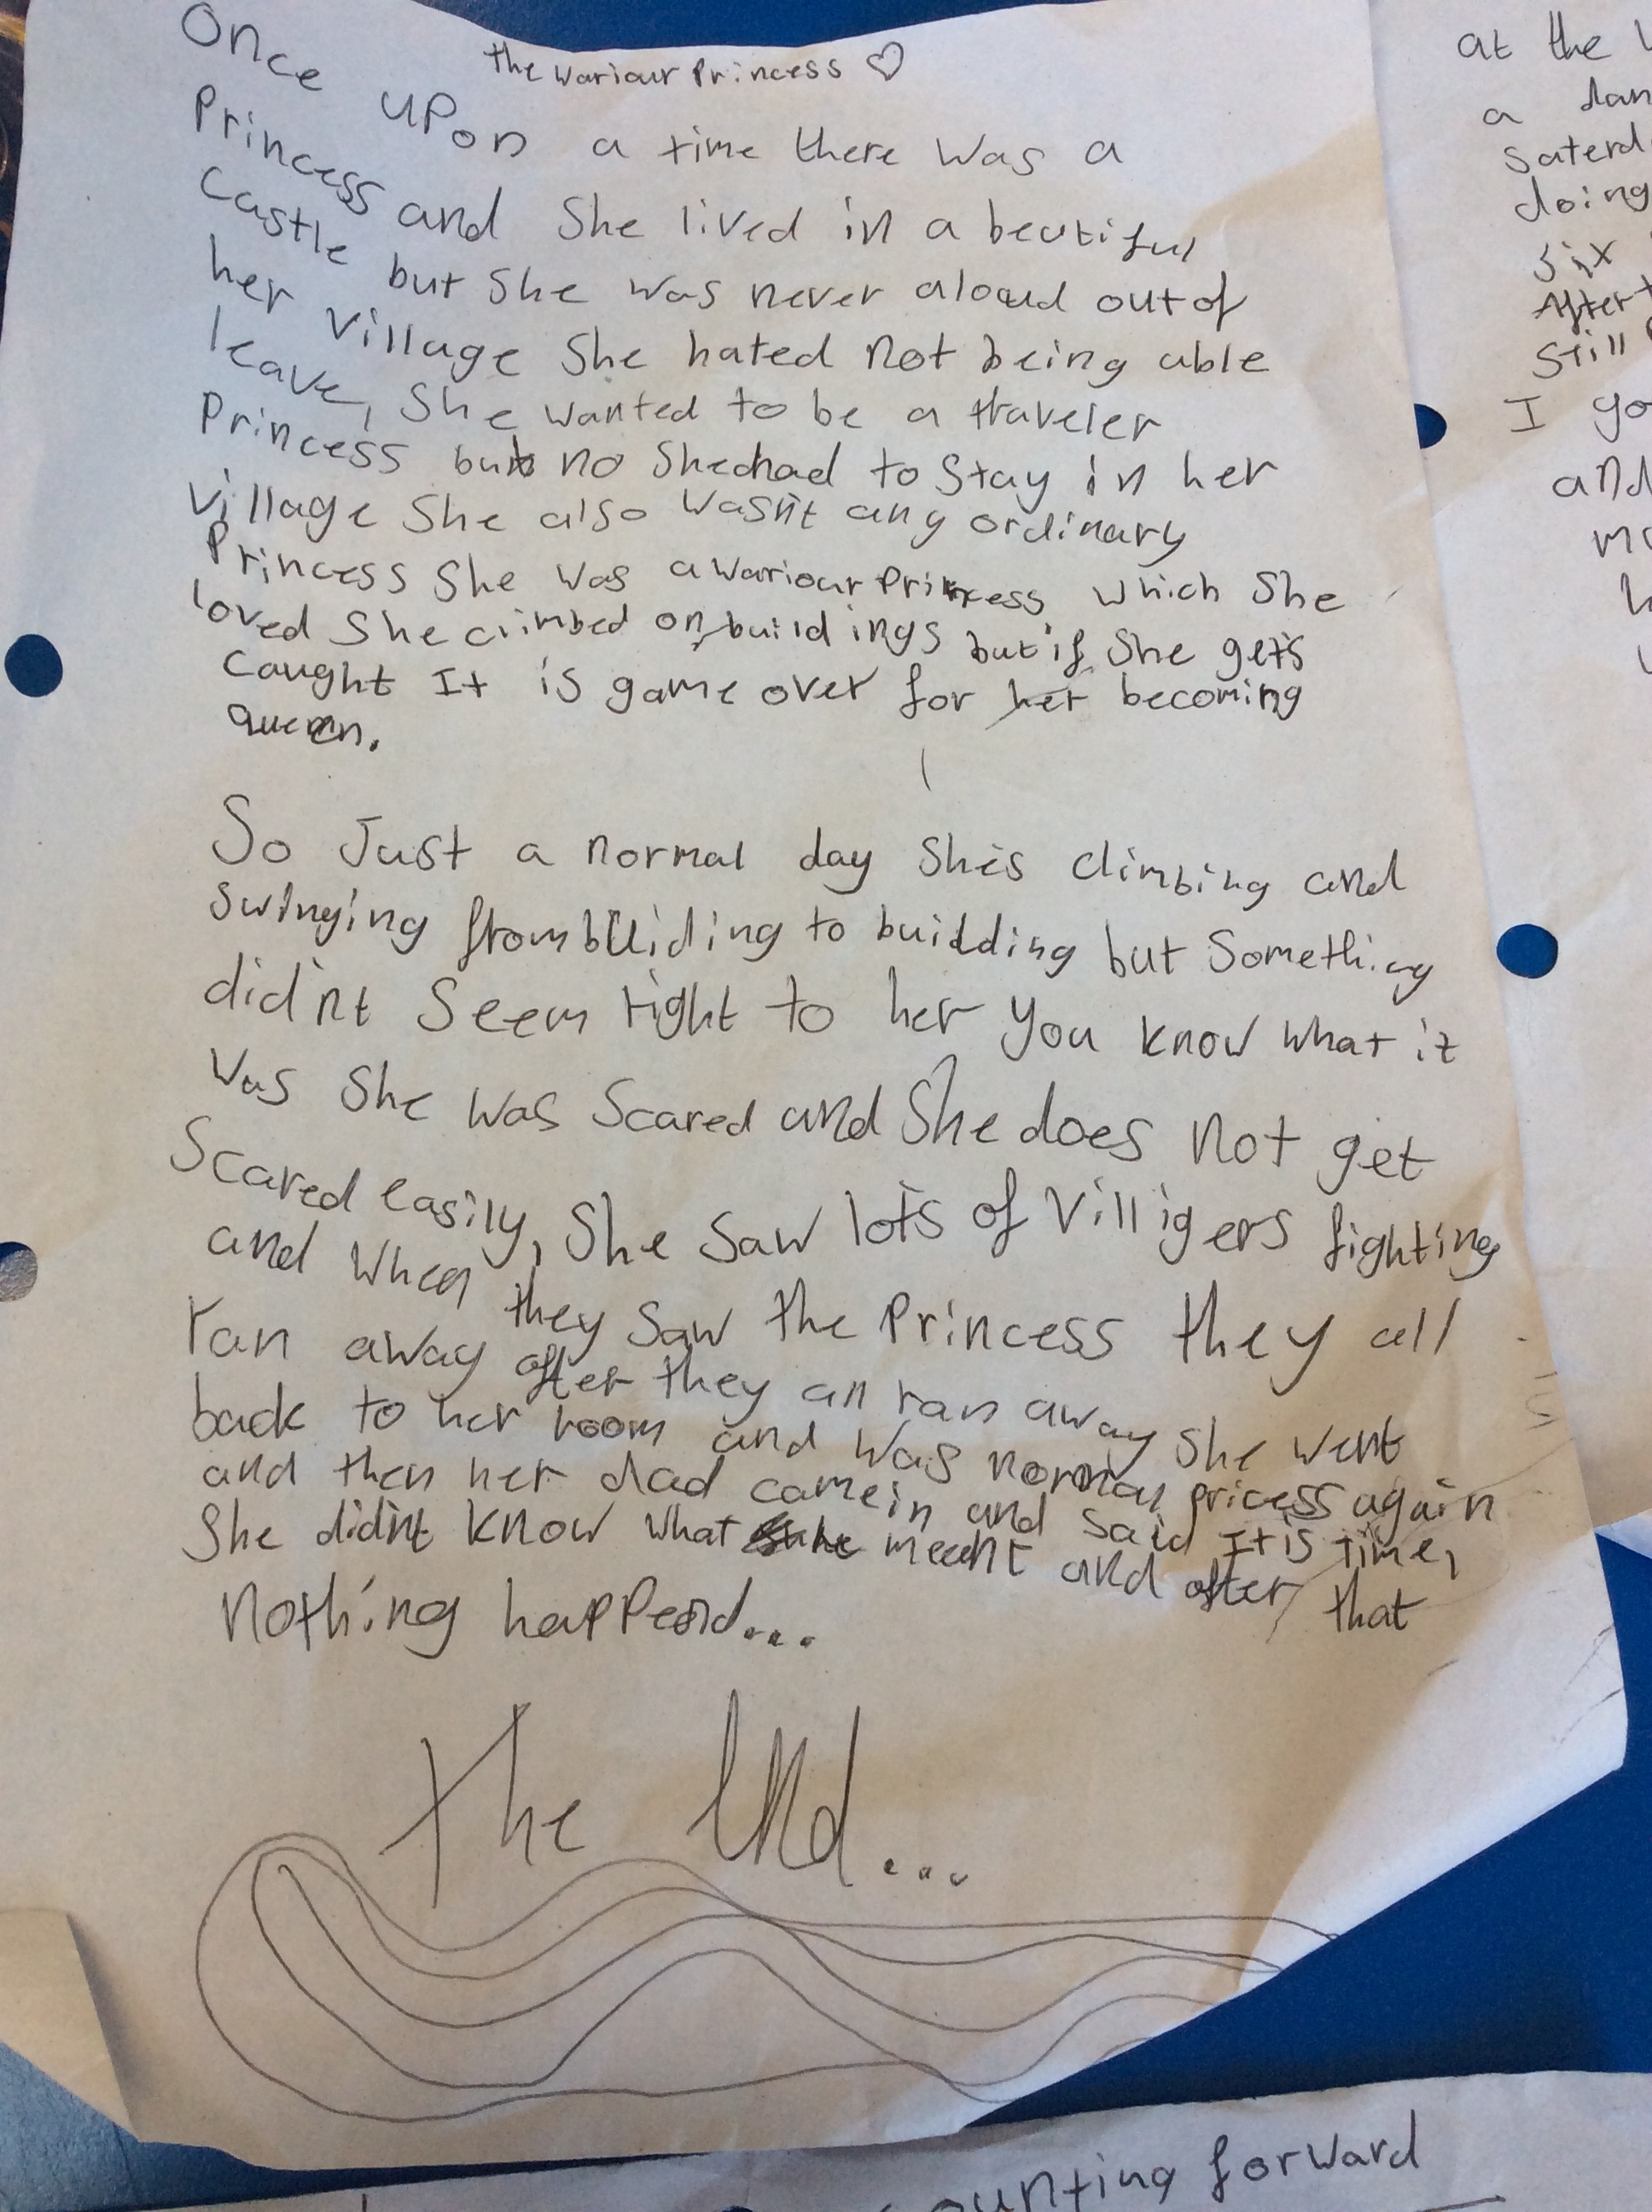 the wariour Princess
Once upon a time there was a
Princess and She lived in a beutiful
Castle but She was never aloud out of
her village She hated not being able
leave, She wanted to be a traveler
Princess but no She had to Stay in her
village She also wasn't any ordinary
Princess She was a wariour Princess which She
loved She climbed on buildings but if She gets
caught It is game over for her becoming
queen.
So Just a normal day She's climbing and
swinging from building to building but Something
didn't Seem right to her you know what it
was She was Scared and She does not get
Scared easily, She Saw lots of villigers fighting
and when they Saw the Princess they all
ran away after they all ran away She went
back to her room and was normal pricess again
and then her dad came in and said It is time,
She didn't know what he meant and after that
nothing happend...
the End...
at the
a
Saterd
doing
six
After
Still
I go
and
ounting forward